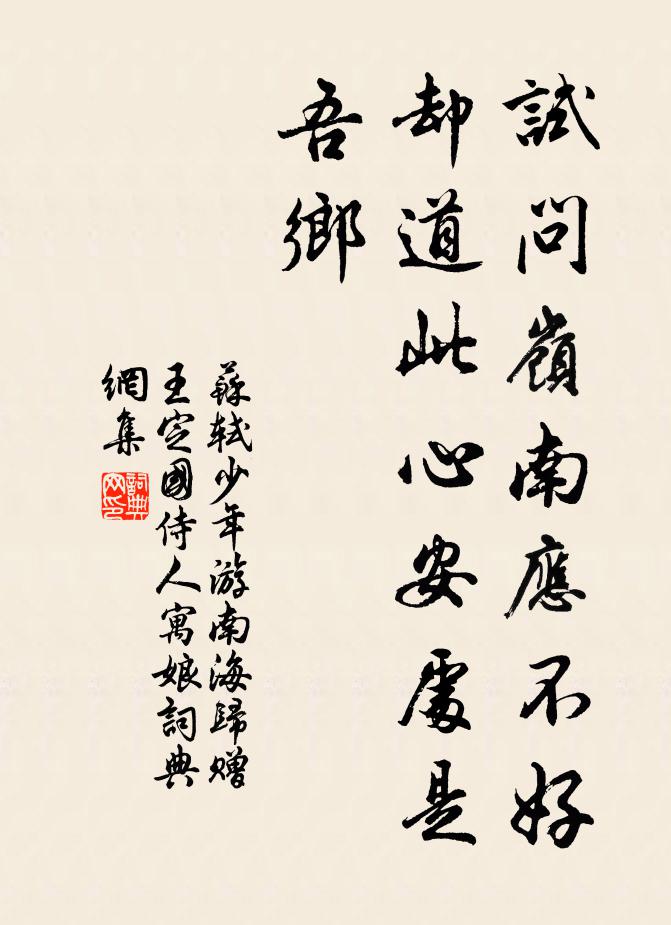 試問嶺南應不好
却道此心安處是
吾鄉
蘇軾少年游南海歸贈
王定國侍人寓娘詞典
網集
詞典
网印